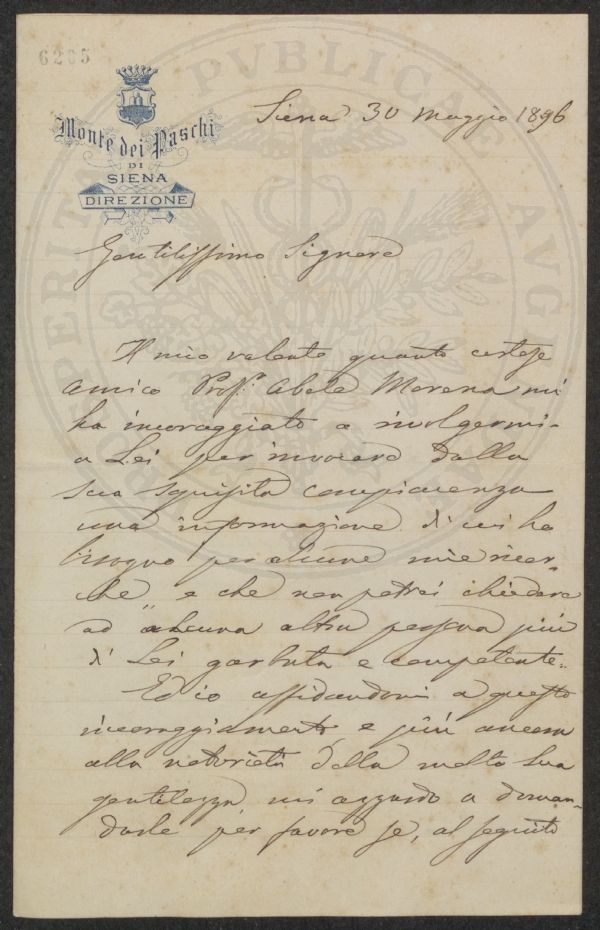 6205
Monte dei Paschi
DI
SIENA
DIREZIONE
Siena 30 Maggio 1896
Gentilissimo Signore
Il mio valente quanto cortese
amico Prof. Abele Morena mi
ha incoraggiato a rivolgermi
a Lei per invocare dalla
sua squisita compiacenza
una informazione di cui ho
bisogno per alcune mie ricer-
che e che non potrei chiedere
ad alcuna altra persona più
di Lei garbata e competente.
Ed io affidandomi a questo
incoraggiamento e più ancora
alla notorietà della molta Sua
gentilezza mi azzardo a doman-
darle per favore se, al seguito